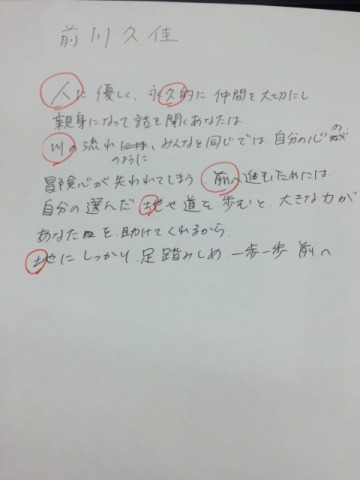 前川久佳
人に優しく、永久的に仲間を大切にし
親身になって話を聞くあなたは
川の流れのように、みんなと同じでは、自分の心の
冒険心が失われてしまう 前へ進むためには
自分の選んだ 地や道を歩むと、大きな力が
あなたを、助けてくれるから、
地にしっかり、足踏みしめ、一歩一歩 前へ